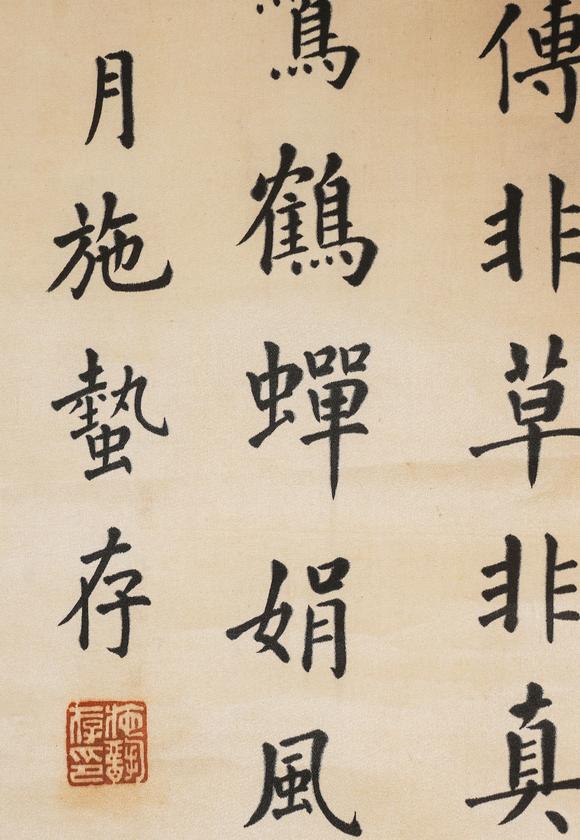 傳非草非真
鶴蟬娟風
月施蟄存
施蟄存印